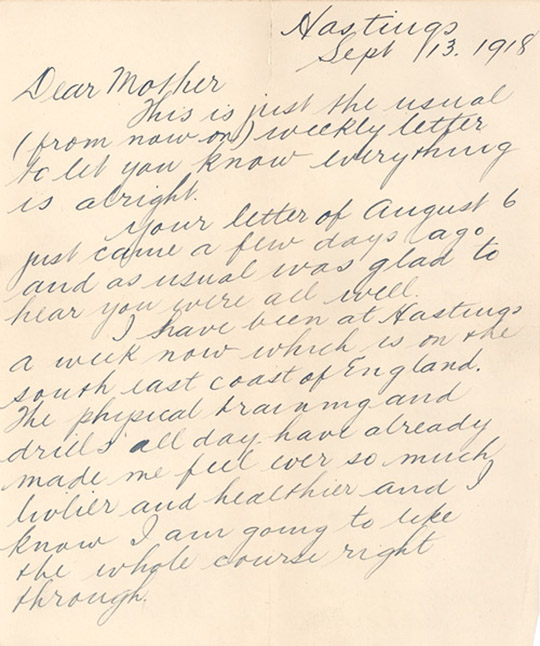 Hastings
Sept 13. 1918
Dear Mother
This is just the usual
(from now on) weekly letter
to let you know everything
is alright.
Your letter of August 6
just came a few days ago
and as usual was glad to
hear you were all well.
I have been at Hastings
a week now which is on the
south east coast of England.
The phipical training and
drills all day have already
made me feel ever so much
livlier and healthier and I
know I am going to like
the whole course right
through.